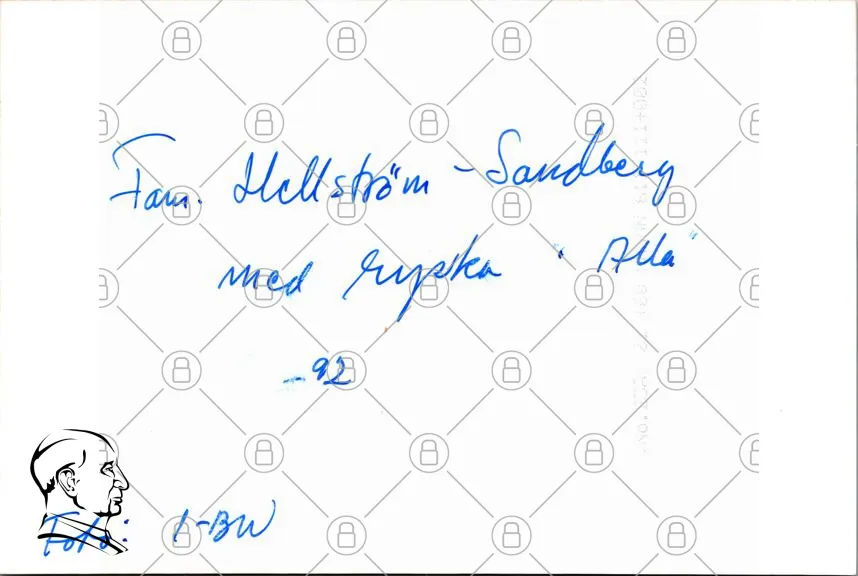 Fam. Hellström - Sandberg
med ryska "Alla"
-92
Foto: I-BW